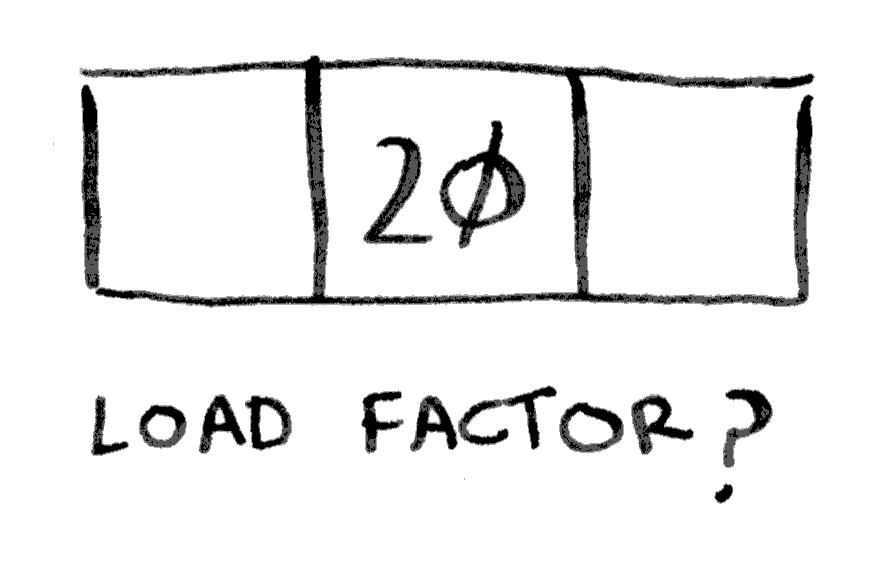 2Ø
LOAD FACTOR?